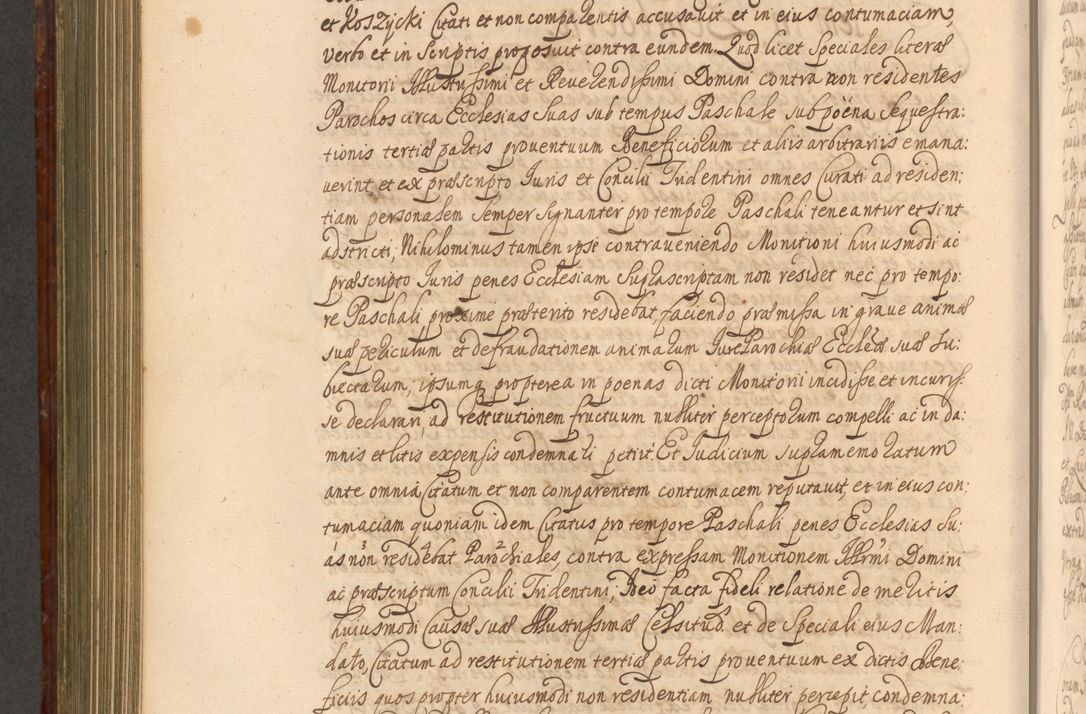 et Koszycki Citati et non comparentis accusavit et in eius contumaciam,
verbo et in Scriptis proposuit contra eundem. Quod licet Speciales literas
Monitorii Illustrissimi et Reverendissimi Domini contra non residentes
Parochos circa Ecclesias suas sub tempus Paschale sub poëna Sequestra:
tionis tertiæ partis proventuum Beneficiorum et aliis arbitrariis emana:
verint, et ex præscripto Iuris et Concilii Tridentini omnes Curati ad residen:
tiam personalem semper signanter pro tempore Paschali teneantur et sint
adstricti, Nihilominus tamen ipse contraveniendo Monitioni huiusmodi ac
præscripto Iuris penes Ecclesiam Suprascriptam non residet nec pro tempo:
re Paschali proxime præterito residebat, faciendo præmissa in grave animæ
suæ periculum et defraudationem animarum Iure Parochiæ Eccl̃æ suæ su:
biectarum, ipsumq̃ propterea in poenas dicti Monitorii incidisse et incuris:
se declarari, ad restitutionem fructuum nulliter perceptorum compelli ac in da:
mnis et litis expensis condemnari petiit. Et Iudicium supramemoratum
ante omnia Citatum et non comparentem contumacem reputavit, et in eius con:
tumaciam quoniam idem Citatus pro tempore Paschali penes Ecclesias su:
as non residebat Parochiales, contra expressam Monitionem Illrm̃i Domini
ac præscriptum Concilii Tridentini, Ideo facta fideli relatione de meritis
huiusmodi Causæ suæ Illustrissimæ Celsitud. et de Speciali eius Man:
dato, Citatum ad restitutionem tertiæ partis proventuum ex dictis Bene:
ficiis quos propter huiusmodi non residentiam nulliter percepit, condemna: